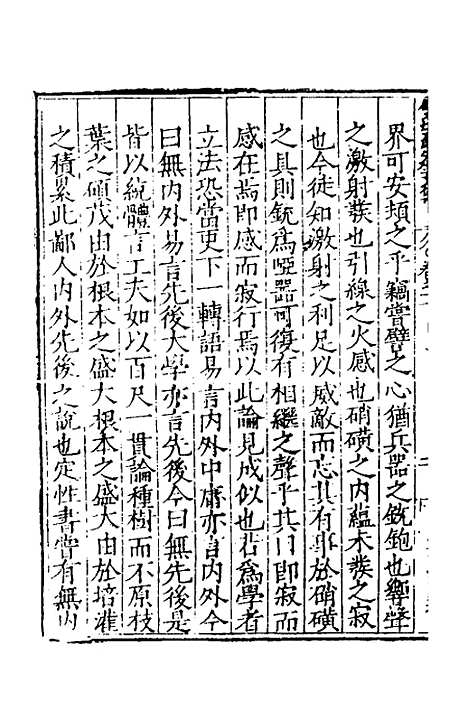 界可安頓之乎竊嘗譬之心猶兵器之銃鉋也響聲
之激射發也引線之火感也硝磺之内藴未發之寂
也今徒知激射之利足以威敵而忘其有事於硝磺
之具則銃爲啞器何復有相繼之聲乎其曰即寂而
感在焉即感而寂行焉以此論見成似也若爲學者
立法恐當更下一轉語易言内外中庸亦言内外今
曰無内外易言先後大學亦言先後今曰無先後是
皆以統體言工夫如以百尺一貫論種樹而不原枝
葉之碩茂由於根本之盛大根本之盛大由於培灌
之積累此鄙人内外先後之說也定性書嘗有無内